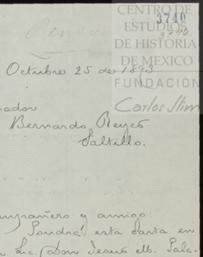 CENTRO DE
ESTUDIOS
3740
DE HISTORIA
DE MEXICO
FUNDACION
Carlos Slim
Octubre 25 de 1893
nador
Bernardo Reyes
Saltillo.
mpañero y amigo:
Pondrá esta carta en
Lic. Don Jesús M.